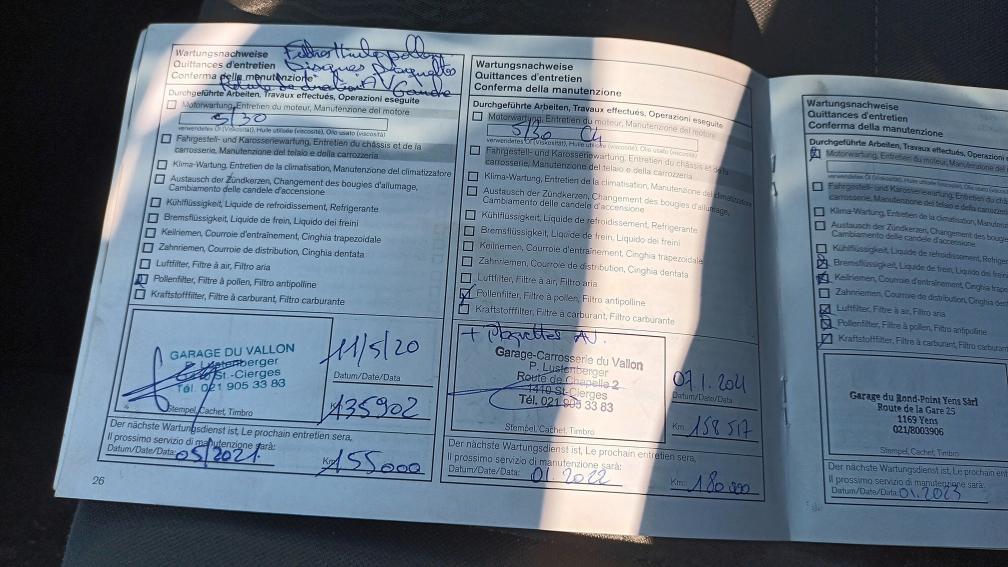 Wartungsnachweise
Quittances d'entretien
Conferma della manutenzione
Disques Plaquettes
Durchgeführte Arbeiten, Travaux effectués, Operazioni eseguite
Motorwartung, Entretien du moteur, Manutenzione del motore
5/30
verwendetes Öl (Viskosität), Huile utilisée (viscosité), Olio usato (viscosità)
Fahrgestell- und Karosseriewartung, Entretien du châssis et de la
carrosserie, Manutenzione del telaio e della carrozzeria
Klima-Wartung, Entretien de la climatisation, Manutenzione del climatizzatore
Austausch der Zündkerzen, Changement des bougies d'allumage,
Cambiamento delle candele d'accensione
Kühlflüssigkeit, Liquide de refroidissement, Refrigerante
Bremsflüssigkeit, Liquide de frein, Liquido dei freini
Keilriemen, Courroie d'entraînement, Cinghia trapezoidale
Zahnriemen, Courroie de distribution, Cinghia dentata
Luftfilter, Filtre à air, Filtro aria
Pollenfilter, Filtre à pollen, Filtro antipolline
Kraftstofffilter, Filtre à carburant, Filtro carburante
GARAGE DU VALLON
P. Lustenberger
1410 St.-Cierges
Tél. 021 905 33 83
Stempel, Cachet, Timbro
11/5/20
Datum/Date/Data
Km 135902
Der nächste Wartungsdienst ist, Le prochain entretien sera,
Il prossimo servizio di manutenzione sarà:
Datum/Date/Data: 05/2021 Km: 155000
26
Wartungsnachweise
Quittances d'entretien
Conferma della manutenzione
Durchgeführte Arbeiten, Travaux effectués, Operazioni eseguite
Motorwartung, Entretien du moteur, Manutenzione del motore
5/30 C4
verwendetes Öl (Viskosität), Huile utilisée (viscosité), Olio usato (viscosità)
Fahrgestell- und Karosseriewartung, Entretien du châssis et de la
carrosserie, Manutenzione del telaio e della carrozzeria
Klima-Wartung, Entretien de la climatisation, Manutenzione del climatizzatore
Austausch der Zündkerzen, Changement des bougies d'allumage,
Cambiamento delle candele d'accensione
Kühlflüssigkeit, Liquide de refroidissement, Refrigerante
Bremsflüssigkeit, Liquide de frein, Liquido dei freini
Keilriemen, Courroie d'entraînement, Cinghia trapezoidale
Zahnriemen, Courroie de distribution, Cinghia dentata
Luftfilter, Filtre à air, Filtro aria
Pollenfilter, Filtre à pollen, Filtro antipolline
Kraftstofffilter, Filtre à carburant, Filtro carburante
+ Plaquettes AV.
Garage-Carrosserie du Vallon
P. Lustenberger
Route de Chapelle 2
1410 St-Cierges
Tél. 021 905 33 83
Stempel, Cachet, Timbro
07.1.2021
Datum/Date/Data
Km 158517
Der nächste Wartungsdienst ist, Le prochain entretien sera,
Il prossimo servizio di manutenzione sarà:
Datum/Date/Data: 01.2022 Km: 180000
Wartungsnachweise
Quittances d'entretien
Conferma della manutenzione
Durchgeführte Arbeiten, Travaux effectués, Operazioni
Motorwartung, Entretien du moteur, Manutenzione
verwendetes Öl (Viskosität), Huile utilisée
Fahrgestell- und Karosseriewartung, Entretien du
carrosserie, Manutenzione del telaio e della
Klima-Wartung, Entretien de la climatisation,
Austausch der Zündkerzen, Changement des
Cambiamento delle candele d'accensione
Kühlflüssigkeit, Liquide de refroidissement,
Bremsflüssigkeit, Liquide de frein, Liquido dei
Keilriemen, Courroie d'entraînement, Cinghia
Zahnriemen, Courroie de distribution, Cinghia
Luftfilter, Filtre à air, Filtro aria
Pollenfilter, Filtre à pollen, Filtro antipolline
Kraftstofffilter, Filtre à carburant, Filtro
Garage du Rond-Point Yens Sàrl
Route de la Gare 25
1169 Yens
021/8003906
Stempel, Cachet, Timbro
Der nächste Wartungsdienst ist, Le prochain
Il prossimo servizio di manutenzione sarà:
Datum/Date/Data: 01.2023